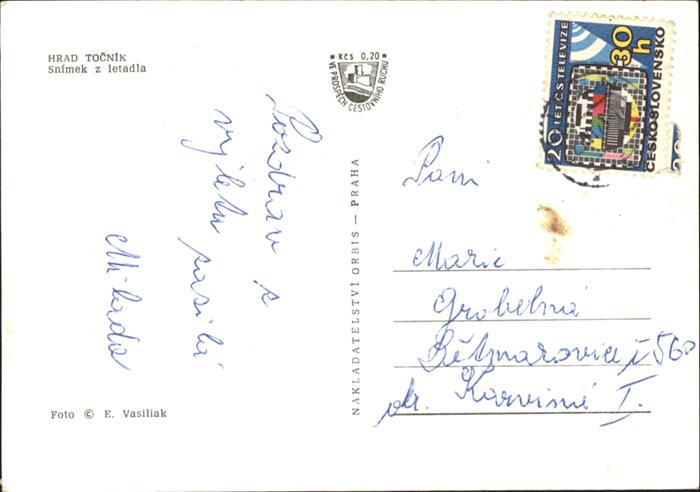 HRAD TOČNÍK
Snímek z letadla
Kčs 0,20
VE PROSPĚCH CESTOVNÍHO RUCHU
20 LET ČS TELEVIZE
30h
ČESKOSLOVENSKO
20
Pozdrav z
výletu zasílá
Milada
NAKLADATELSTVÍ ORBIS — PRAHA
Paní
Marie
Grobelná
Dětmarovice č 560
okr. Karviná I.
Foto © E. Vasiliak